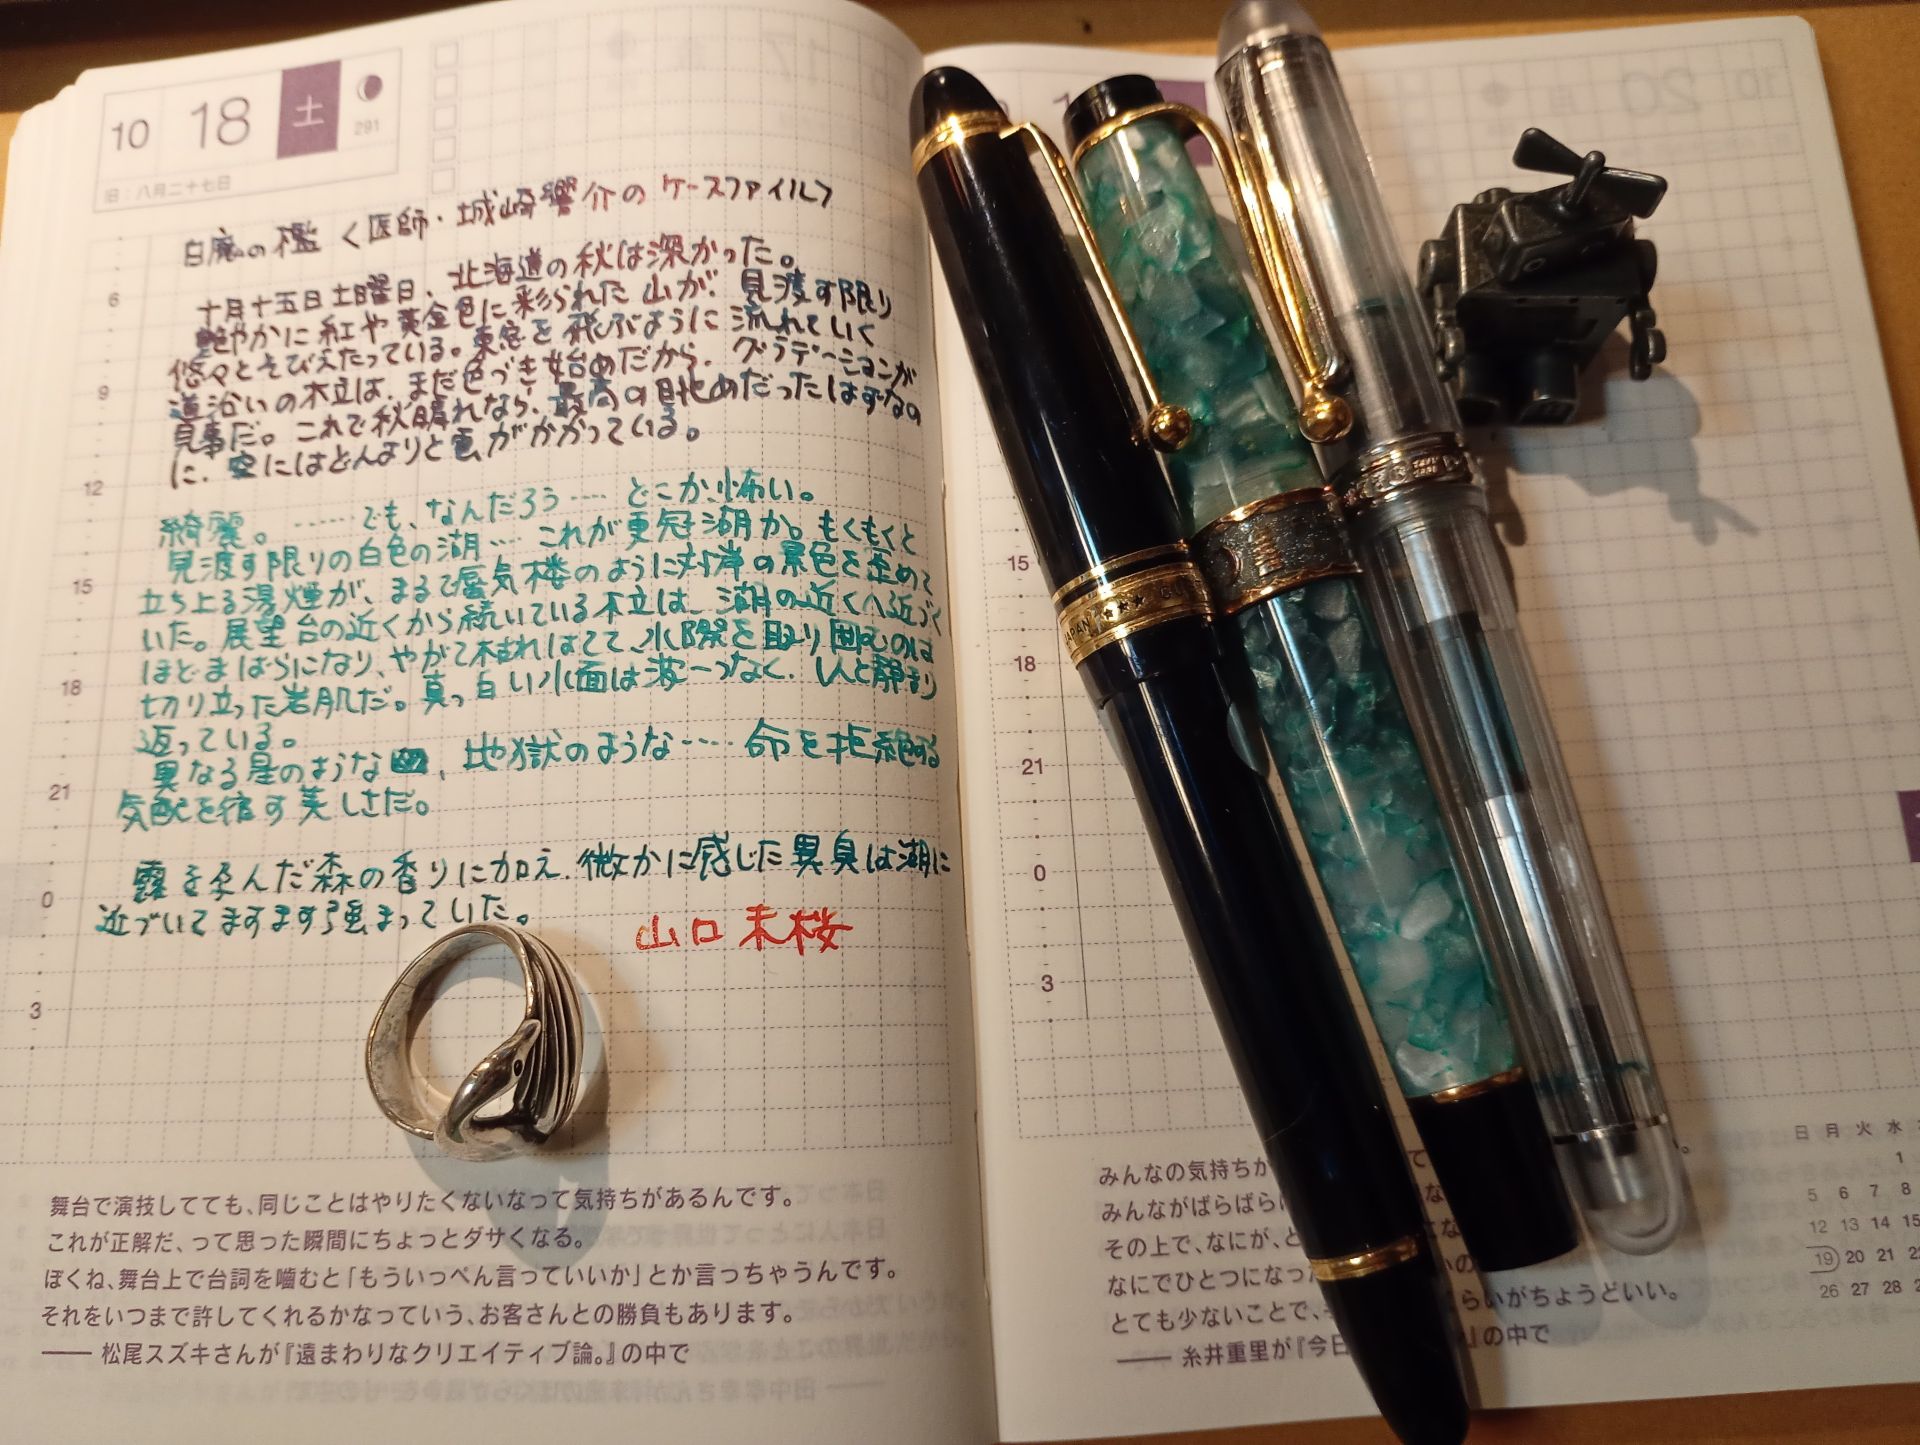 10 18 土
291
旧:八月二十七日
白魔の檻 <医師・城崎響介のケースファイル>
十月十五日土曜日、北海道の秋は深かった。
艶やかに紅や黄金色に彩られた山が、見渡す限り
悠々とそびえたっている。車窓を飛ぶように流れていく
道沿いの木立は、まだ色づき始めだから、グラデーションが
見事だ。これで秋晴れなら、最高の眺めだったはずなの
に、空にはどんよりと雲がかかっている。
綺麗。……でも、なんだろう……どこか、怖い。
見渡す限りの白色の湖……これが更冠湖か。もくもくと
立ち上る湯煙が、まるで蜃気楼のように対岸の景色を歪めて
いた。展望台の近くから続いている木立は、湖の近くへ近づく
ほどまばらになり、やがて枯れはてて、水際を取り囲むのは
切り立った岩肌だ。真っ白い水面は波一つなく、しんと静まり
返っている。
異なる星のような、地獄のような……命を拒絶する
気配を宿す美しさだ。
露を孕んだ森の香りに加え、微かに感じた異臭は湖に
近づいてますます強まっていた。
山口未桜
6
9
12
15
18
21
0
3
舞台で演技してても、同じことはやりたくないなって気持ちがあるんです。
これが正解だ、って思った瞬間にちょっとダサくなる。
ぼくね、舞台上で台詞を噛むと「もういっぺん言っていいか」とか言っちゃうんです。
それをいつまで許してくれるかなっていう、お客さんとの勝負もあります。
—— 松尾スズキさんが『遠まわりなクリエイティブ論。』の中で
JAPAN ★★★
15
18
21
0
3
みんなの気持ちが
みんながばらばら
その上で、なにが、
なにでひとつになった
とても少ないことで、 らいがちょうどいい。
—— 糸井重里が『今日 』の中で
日 月 火 水
1
5 6 7 8
12 13 14 15
19 20 21 22
26 27 28